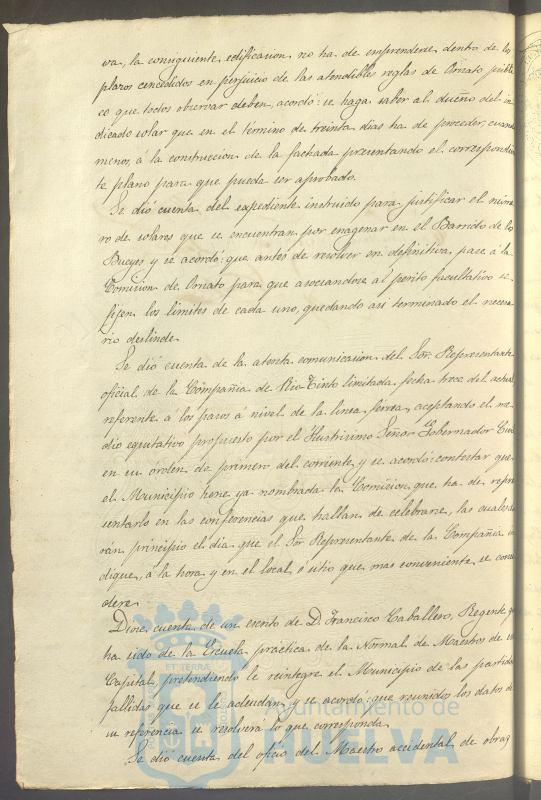 va, la consiguiente edificacion no ha de emprenderse dentro de los
plazos concedidos en perjuicio de las atendibles reglas de Ornato públi
co que todos observar deben, acordó: se haga saber al dueño del in
dicado solar que en el término de treinta dias ha de proceder, cuando
menos, á la construccion de la fachada presentando el correspondien
te plano para que pueda ser aprobado.
Se dió cuenta del expediente instruido para justificar el núme
ro de solares que se encuentran por enagenar en el Barrio de los
Bueyes y se acordó: que antes de resolver en definitiva, pase á la
Comision de Ornato para que asociandose al perito facultativo se
fijen los limites de cada uno, quedando asi terminado el necesa
rio deslinde.
Se dió cuenta de la atenta comunicacion del Sor. Representante
oficial de la Compañia de Rio-Tinto limitada, fecha trece del actual
referente á los pasos á nivel de la linea férrea, aceptando el me
dio equitativo propuesto por el Ilustrisimo Señor Gobernador Civil
en su órden de primero del corriente, y se acordó: contestar que
el Municipio tiene ya nombrada la Comision que ha de repre
sentarlo en las conferencias que hallan de celebrarse, las cuales da
rán principio el dia que el Sor. Representante de la Compañia in
dique, á la hora y en el local ó sitio que mas conveniente se consi
dere.
Diose cuenta de un escrito de D. Francisco Caballero, Regente que
ha sido de la Escuela práctica de la Normal de Maestros de esta
Capital, pretendiendo le reintegre el Municipio de las partidas
fallidas que se le adeudan, y se acordó: que reunidos los datos de
su referencia se resolverá lo que corresponda.
Se dió cuenta del oficio del Maestro accidental de obras
ET TERRÆ
Ayuntamiento de
HUELVA